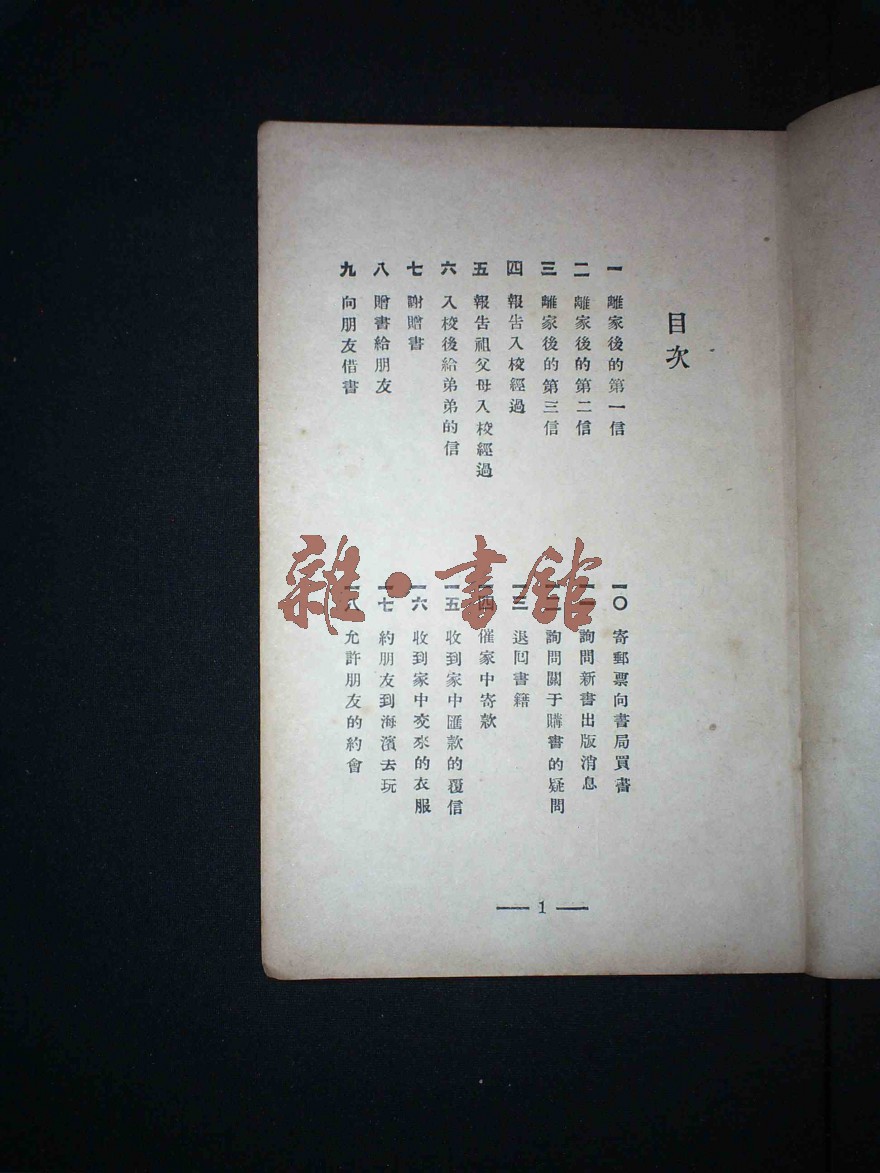 目次
一 離家後的第一信
二 離家後的第二信
三 離家後的第三信
四 報告入校經過
五 報告祖父母入校經過
六 入校後給弟弟的信
七 謝贈書
八 贈書給朋友
九 向朋友借書
一〇 寄郵票向書局買書
一一 詢問新書出版消息
一二 詢問關于購書的疑問
一三 退回書籍
一四 催家中寄款
一五 收到家中匯款的覆信
一六 收到家中交來的衣服
一七 約朋友到海濱去玩
一八 允許朋友的約會
— 1 —
雜·書館